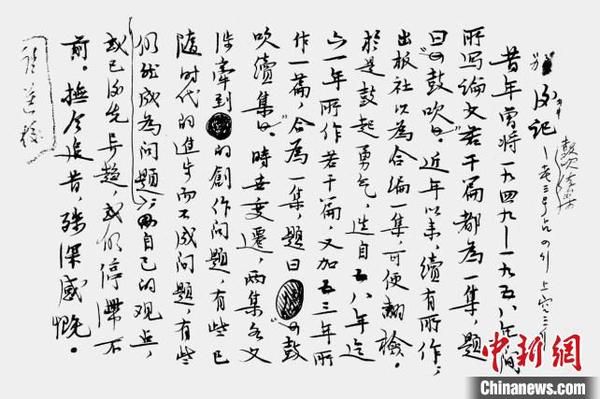 后记
昔年曾將一九四九—一九五八年间
所写论文若干篇都為一集，题
曰《鼓吹》。近年以来，续有所作，
出板社以為合编一集，可便翻檢。
於是鼓起勇气，选自五八年迄
六一年所作若干篇，又加五三年所
作一篇，合為一集，题曰《鼓
吹续集》。時世变遷，两集各文
涉牽到的創作问题，有些已
随时代的進步而不成问题，有些
仍然成為问题，自己的观点，
或已后先异趋，或仍停滞不
前。撫今追昔，殊深感慨。
中新網
Chinanews.com